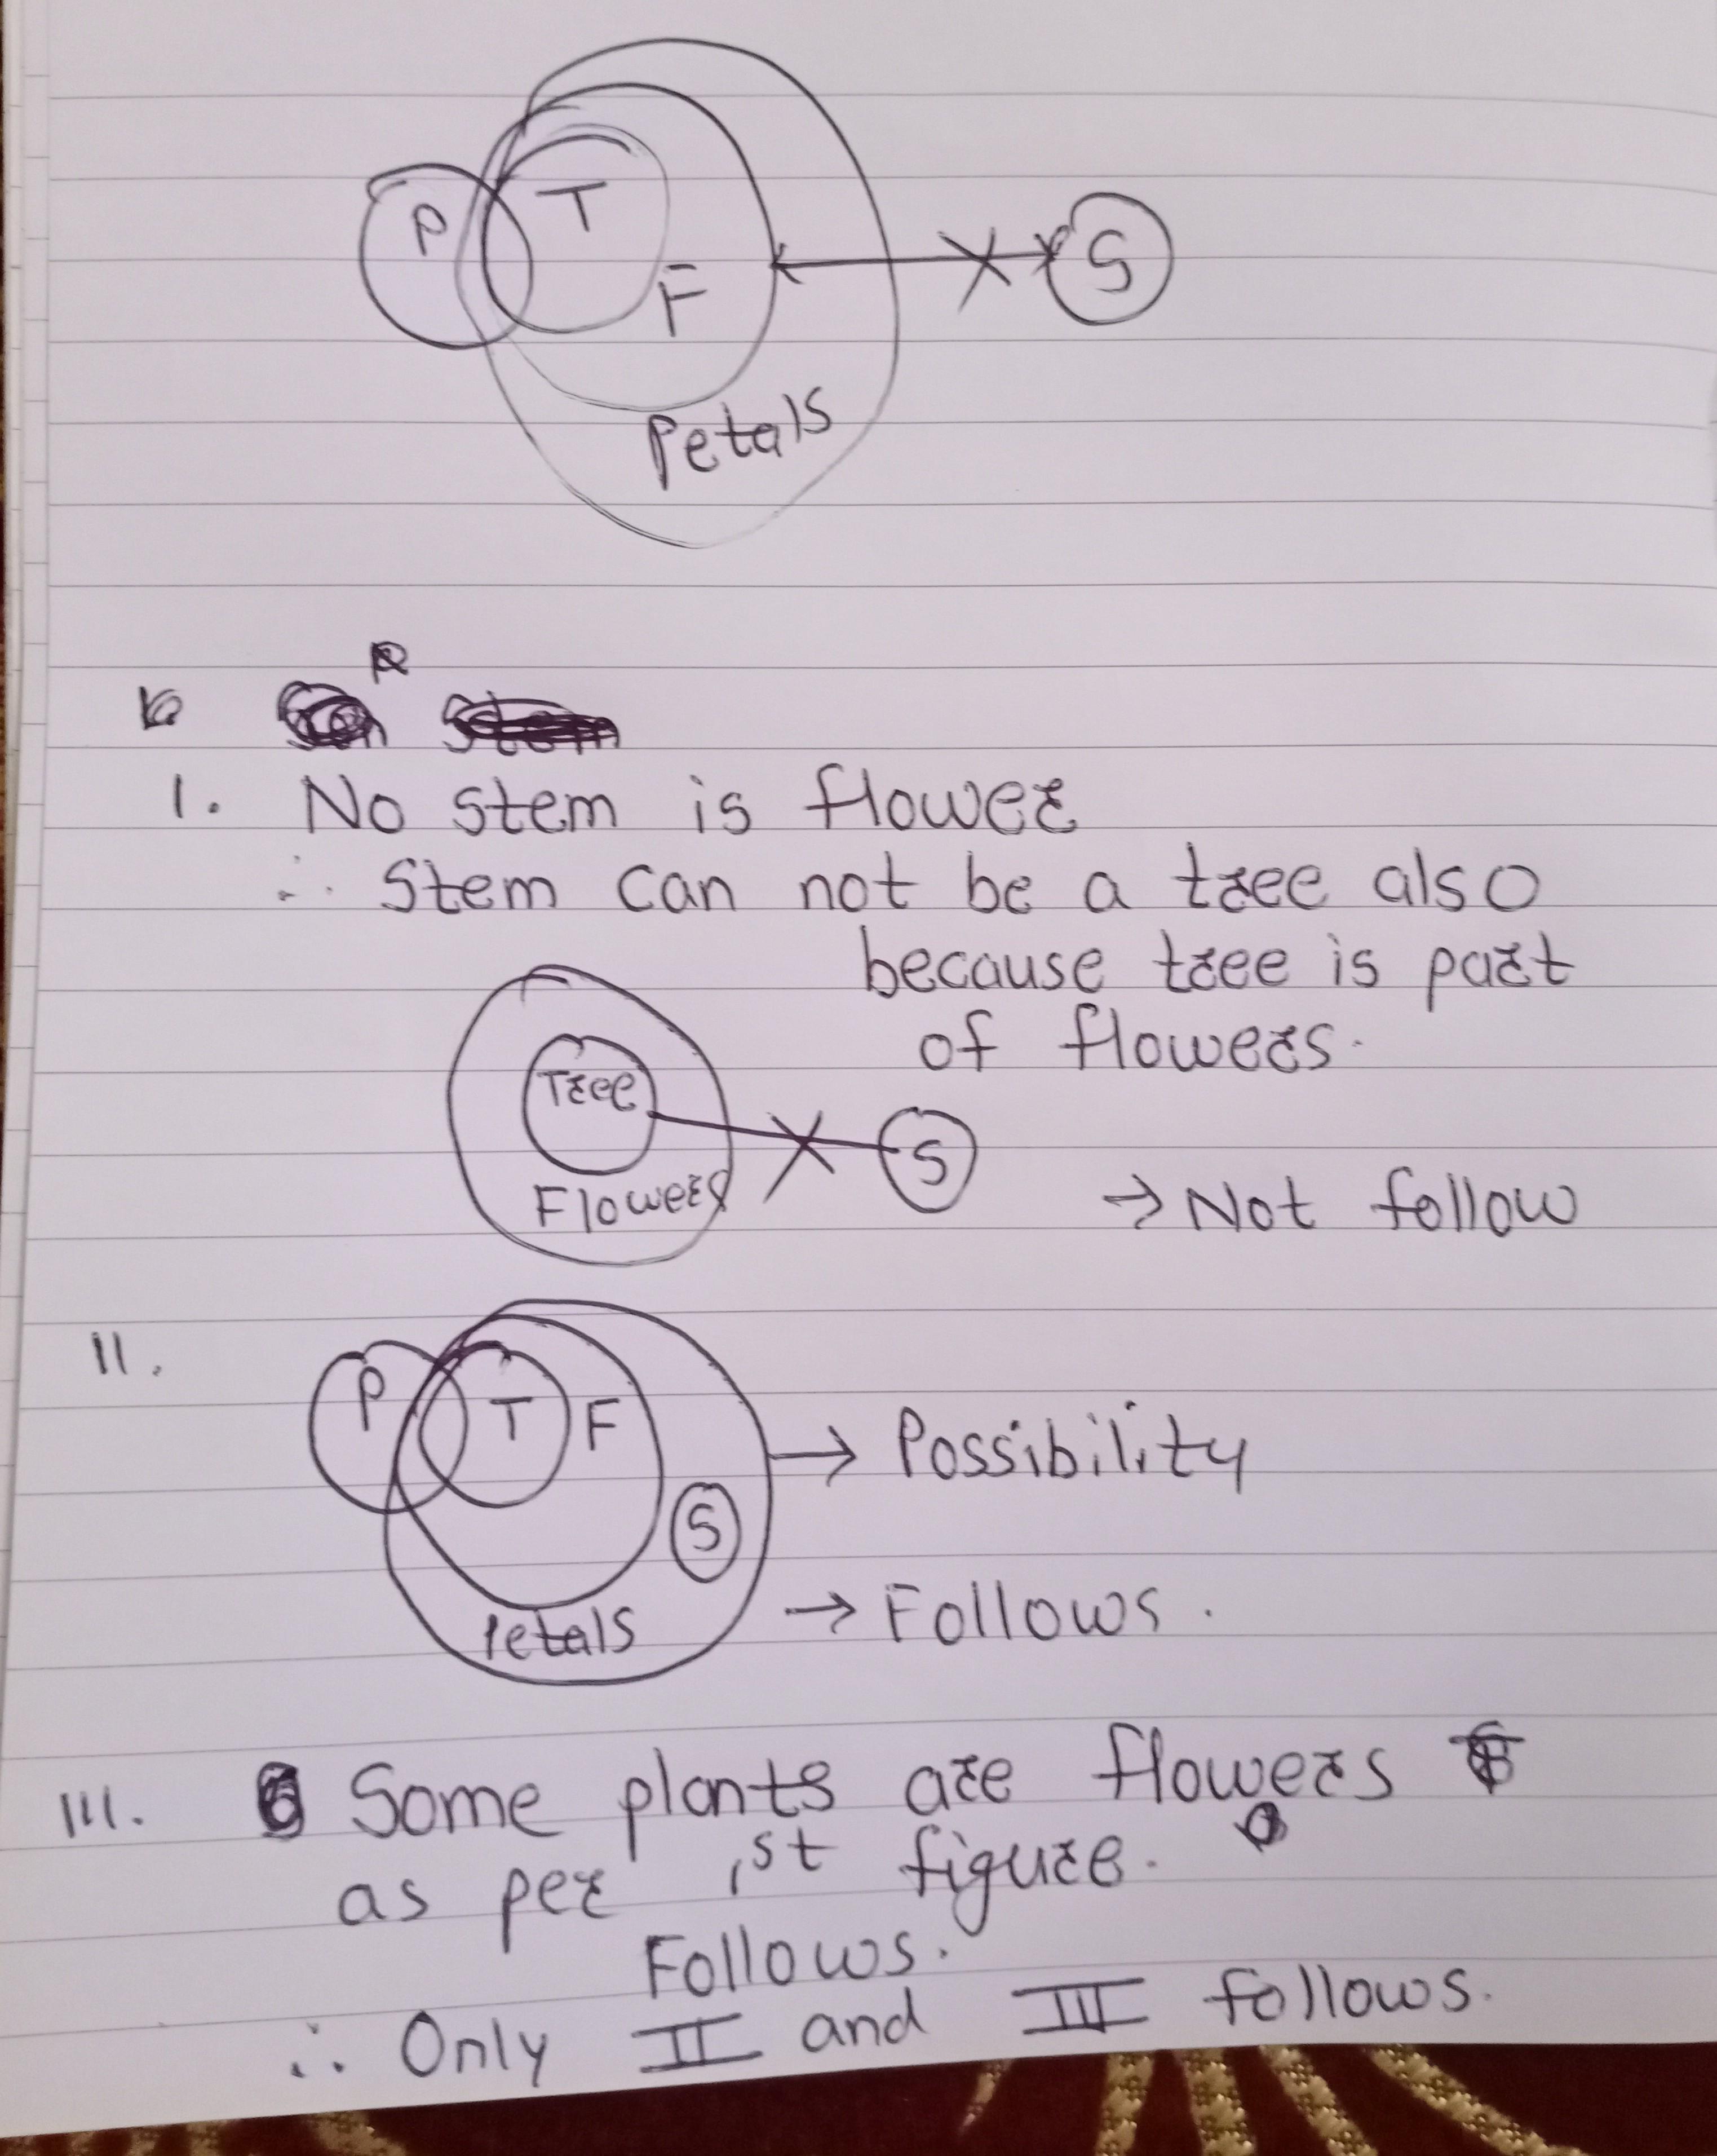 P T F S
Petals
1. No stem is flower
∴ Stem can not be a tree also
because tree is part
of flowers.
Tree
S
Flowers
→ Not follow
II.
P T F → Possibility
S
Petals → Follows.
III. Some plants are flowers
as per 1st figure.
Follows.
∴ Only II and III follows.